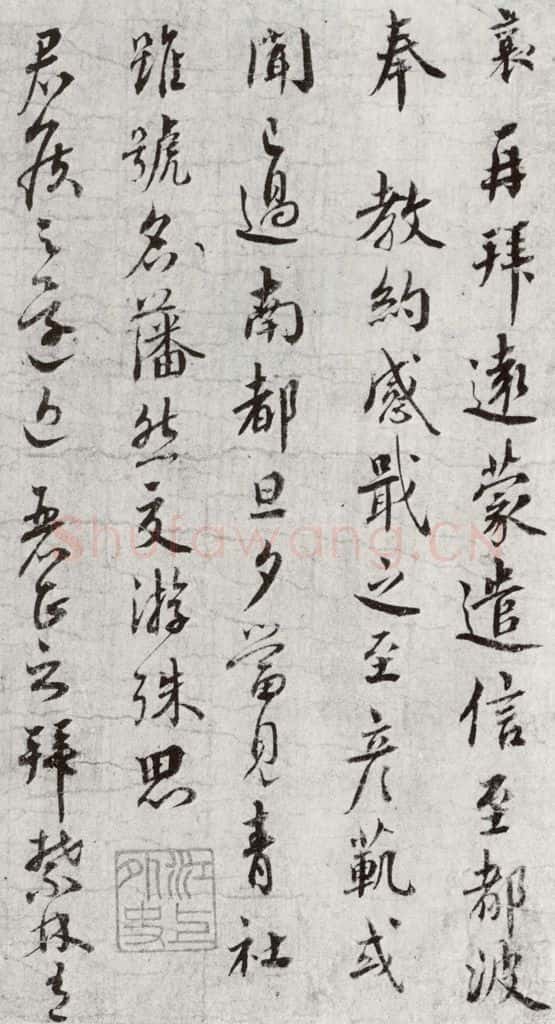 襄再拜遠蒙遣信至都波
奉 教約感戢之至彦範或
聞已過南都旦夕當見青社
雖號名藩然交游殊思
君侯之還近麗正之拜禁林有
江上外史
Shufawang.CN